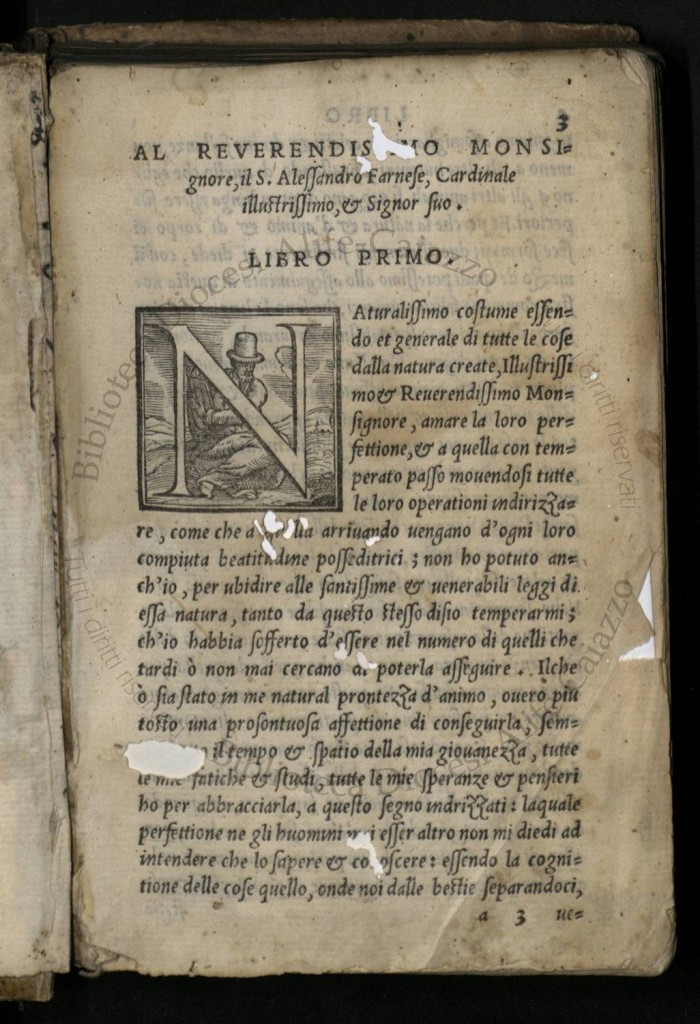 3
AL REVERENDIS MO MONSI=
gnore, il S. Alessandro Farnese, Cardinale
illustrissimo, & Signor suo.
LIBRO PRIMO.
NAturalissimo costume essen=
do et generale di tutte le cose
dalla natura create, Illustrissi
mo & Reuerendissimo Mon=
signore, amare la loro per=
fettione, & a quella con tem=
perato passo mouendosi tutte
le loro operationi indirizza=
re, come che a quella arriuando uengano d'ogni loro
compiuta beatitudine posseditrici; non ho potuto an=
ch'io, per ubidire alle santissime & uenerabili leggi di
essa natura, tanto da questo stesso disio temperarmi;
ch'io habbia sofferto d'essere nel numero di quelli che
tardi ò non mai cercano di poterla asseguire. Ilche
ò sia stato in me natural prontezza d'animo, ouero piu
tosto una prosontuosa affettione di conseguirla, sem=
il tempo & spatio della mia giouanezza, tutte
le mie fatiche & studi, tutte le mie speranze & pensieri
ho per abbracciarla, a questo segno indrizzati: laquale
perfettione ne gli huomini mai esser altro non mi diedi ad
intendere che lo sapere & conoscere: essendo la cogni=
tione delle cose quello, onde noi dalle bestie separandoci,
a 3 ue=
Biblioteca Diocesi Alife-Caiazzo
Tutti i diritti riservati